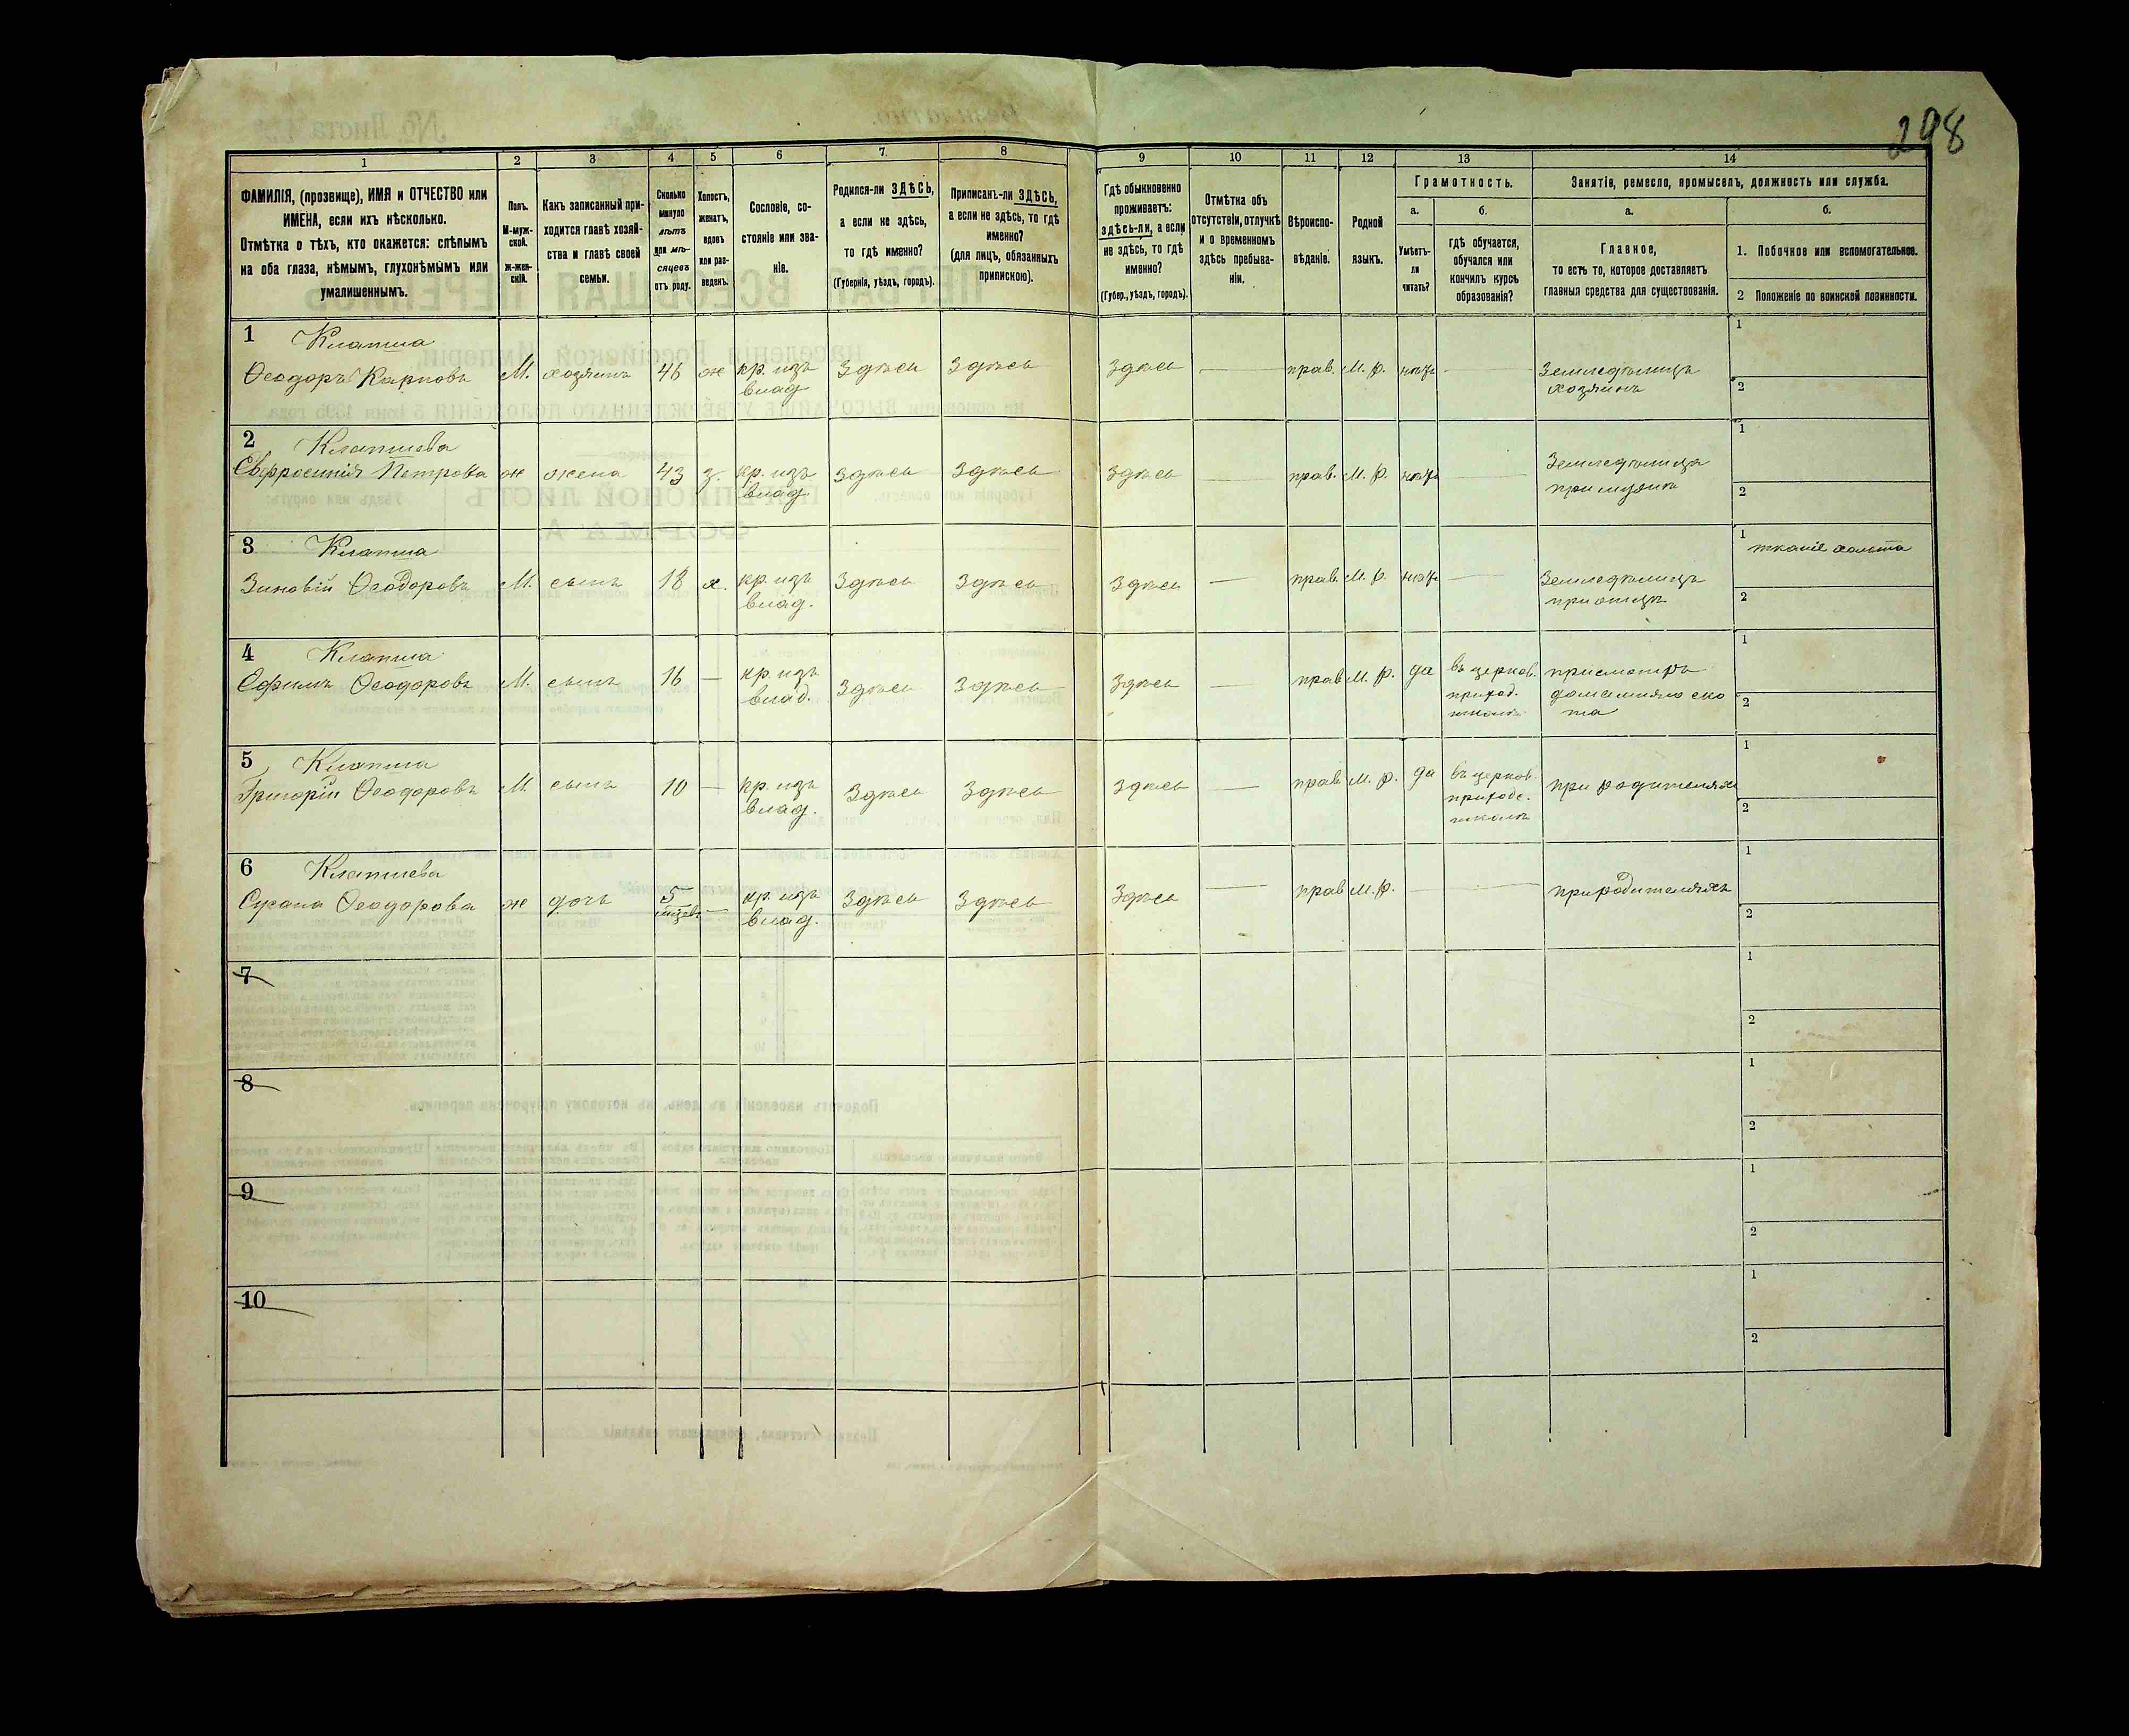 298
1 2 3 4 5 6 7. 8 9 10 11 12 13 14
ФАМИЛІЯ, (прозвище), ИМЯ и ОТЧЕСТВО или
ИМЕНА, если ихъ нѣсколько.
Отмѣтка о тѣхъ, кто окажется: слѣпымъ
на оба глаза, нѣмымъ, глухонѣмымъ или
умалишеннымъ.
Полъ.
М-муж-
ской.
Ж-жен-
скій.
Какъ записанный при-
ходится главѣ хозяй-
ства и главѣ своей
семьи.
Сколько
минуло
лѣтъ
или мѣ-
сяцевъ
отъ роду.
Холостъ,
женатъ,
вдовъ
или раз-
веденъ.
Сословіе, со-
стояніе или зва-
ніе.
Родился-ли ЗДѢСЬ,
а если не здѣсь,
то гдѣ именно?
(Губернія, уѣздъ, городъ).
Приписанъ-ли ЗДѢСЬ,
а если не здѣсь, то гдѣ
именно?
(для лицъ, обязанныхъ
припискою).
Гдѣ обыкновенно
проживаетъ:
здѣсь-ли, а если
не здѣсь, то гдѣ
именно?
(Губер., уѣздъ, городъ).
Отмѣтка объ
отсутствіи, отлучкѣ
и о временномъ
здѣсь пребыва-
ніи.
Вѣроиспо-
вѣданіе.
Родной
языкъ.
Грамотность.
а.
Умѣетъ-
ли
читать?
б.
гдѣ обучается,
обучался или
кончилъ курсъ
образованія?
Занятіе, ремесло, промыселъ, должность или служба.
а.
Главное,
то есть то, которое доставляетъ
главныя средства для существованія.
б.
1. Побочное или вспомогательное.
2 Положеніе по воинской повинности.
1 Клапша
Ѳеодоръ Карповъ М. хозяинъ 46 ж кр. изъ Здѣсь Здѣсь Здѣсь — прав. М. р. нѣтъ — Земледѣлецъ
влад. хозяинъ
1
2
2 Клапшева
Евфросинія Петрова ж жена 43 з. кр. изъ Здѣсь Здѣсь Здѣсь — прав. М. р. нѣтъ — Земледѣлица
влад. при мужѣ
1
2
3 Клапша
Зиновій Ѳеодоровъ М. сынъ 18 х. кр. изъ Здѣсь Здѣсь Здѣсь — прав. М. р. нѣтъ — Земледѣлецъ
влад. при отцѣ
1 тканіе холста
2
4 Клапша
Ефимъ Ѳеодоровъ М. сынъ 16 — кр. изъ Здѣсь Здѣсь Здѣсь — прав. М. р. да въ церков. присмотръ
влад. приход. домашняго ско
школѣ та
1
2
5 Клапша
Григорій Ѳеодоровъ М. сынъ 10 — кр. изъ Здѣсь Здѣсь Здѣсь — прав. М. р. да въ церков. при родителяхъ
влад. приходс.
школѣ
1
2
6 Клапшева
Сусана Ѳеодорова ж дочь 5 — кр. изъ Здѣсь Здѣсь Здѣсь — прав. М. р. — — при родителяхъ
влад.
1
2
7
1
2
8
1
2
9
1
2
10
1
2